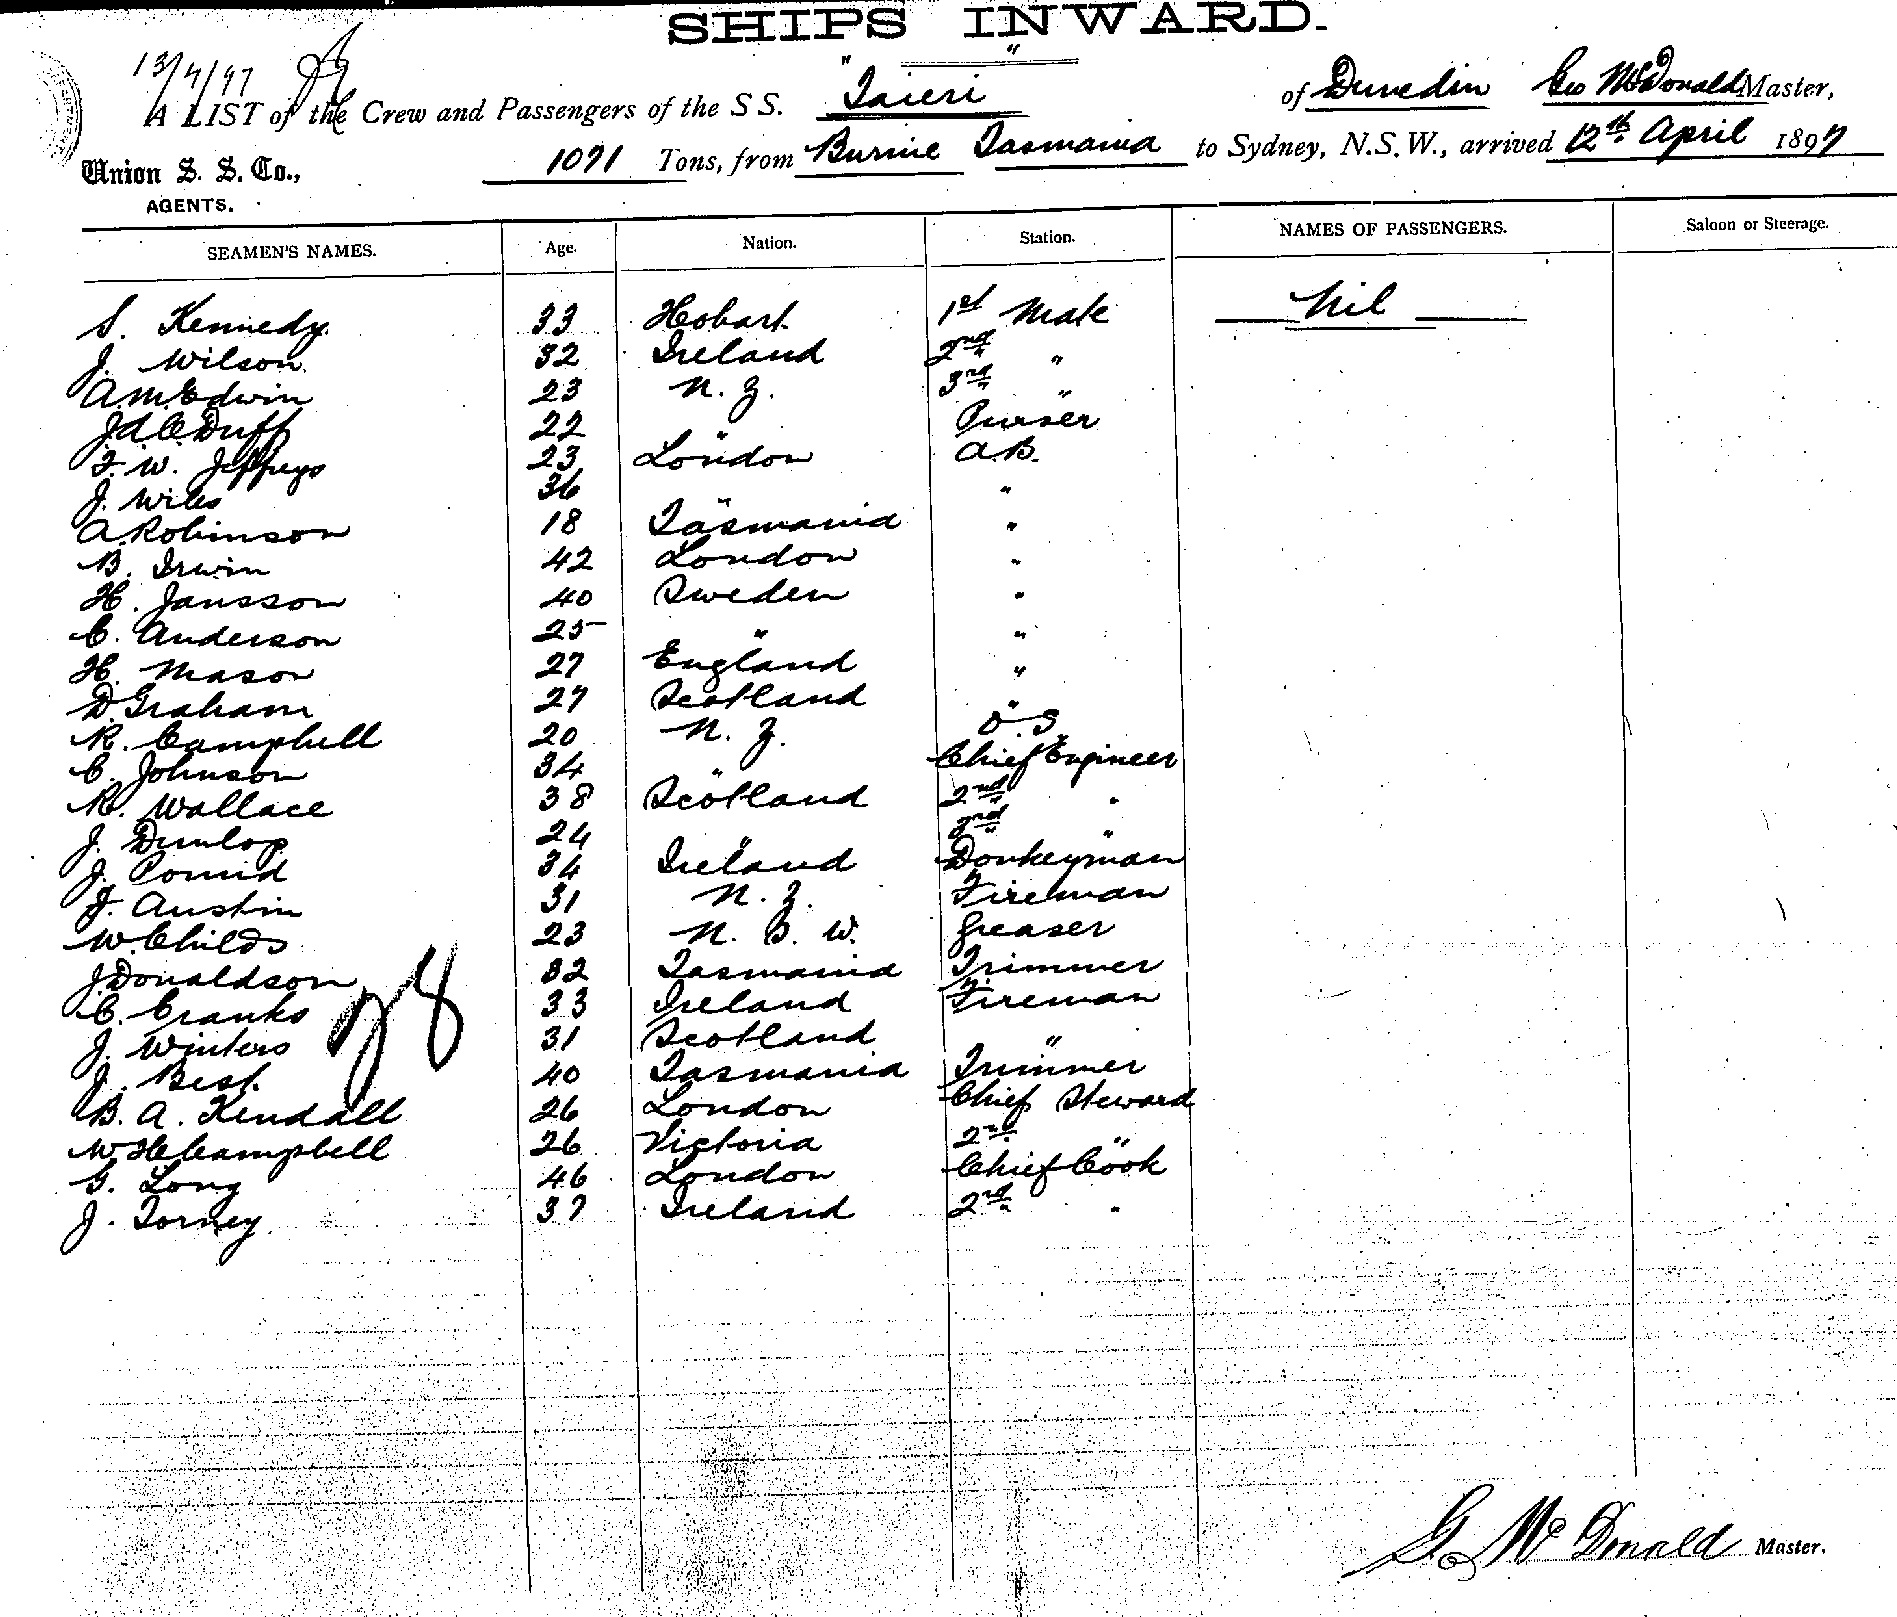 SHIPS INWARD.
13/4/97
A LIST of the Crew and Passengers of the S S. "Taieri" of Dunedin Geo McDonald Master,
1071 Tons, from Burnie Tasmania to Sydney, N.S.W., arrived 12th April 1897
Union S. S. Co.,
AGENTS.
SEAMEN'S NAMES. Age. Nation. Station. NAMES OF PASSENGERS. Saloon or Steerage.
S. Kennedy 33 Hobart 1st Mate Nil
J. Wilson 32 Ireland 2nd "
A. McEdwin 23 N. Z. 3rd "
J.A.C. Duff 22 " Purser
F. W. Jeffreys 23 London A.B.
J. Wiles 36 " "
A. Robinson 18 Tasmania "
B. Irwin 42 London "
H. Jansson 40 Sweden "
C. Anderson 25 " "
H. Mason 27 England "
D. Graham 27 Scotland "
R. Campbell 20 N. Z. O.S.
C. Johnson 34 " Chief Engineer
R. Wallace 38 Scotland 2nd "
J. Dunlop 24 " 3rd "
J. 34 Ireland Donkeyman
J. Austin 31 N. Z. Fireman
W. Childs 23 N. S. W. Greaser
J. Donaldson 32 Tasmania Trimmer
C. Cranks 33 Ireland Fireman
J. Winters 31 Scotland "
J. Best 40 Tasmania Trimmer
B. A. Kendall 26 London Chief Steward
W H Campbell 26 Victoria 2nd "
G. Long 46 London Chief Cook
J. Torney 37 Ireland 2nd "
28
G. McDonald Master.